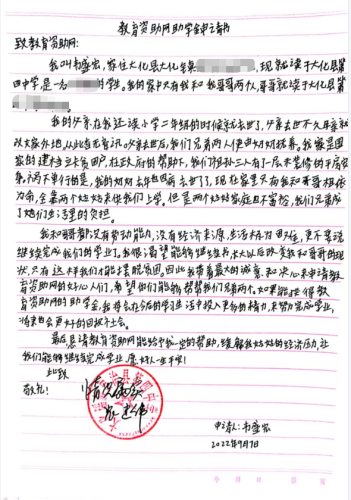 教育资助网助学金申请书
致教育资助网:
我叫韦盛宏,家住大化县大化镇,现就读于大化县第
四中学是一名的学生。我的家中只有我和我哥哥两个,哥哥就读于大化县第
。我的父亲在我还读小学二年级的时候就去世了,父亲去世不久母亲就
改嫁外地,从此杳无音讯。父亲去世后,我们兄弟两人便由奶奶抚养。我家是国
家的建档立卡贫困户,在政府的帮助下,我们祖孙三人有了一层未装修的平房居
。不幸的是,我的奶奶去年也因病去世了,现在家里只有我和哥哥相依
为命,全靠两个姑姑来供我们上学。但是两个姑姑家庭也不富裕,我们兄弟成
了她们生活里的负担。
我和哥哥都没有劳动能力,没有经济来源,生活都成困难,更不要说
继续完成我们的学业了。我很渴望能够继续读书,长大以后改变我和哥哥的现
状,只有这样我们才能摆脱贫困。因此我带着最大的诚意和决心来申请教
育资助网的好心人们,希望你们能够帮帮我们兄弟两个。如果能获得教
育资助网的助学金,我将会在今后的学习生活中投入更多的精力,来努力完成学业,
将来也会更好的回报社会。
最后恳请教育资助网能给予我一定的帮助,缓解我姑姑的经济压力,让
我们能够继续完成学业,愿好人一生平安!
此致
敬礼!
情况属实
申请人:韦盛宏
2022年9月7日